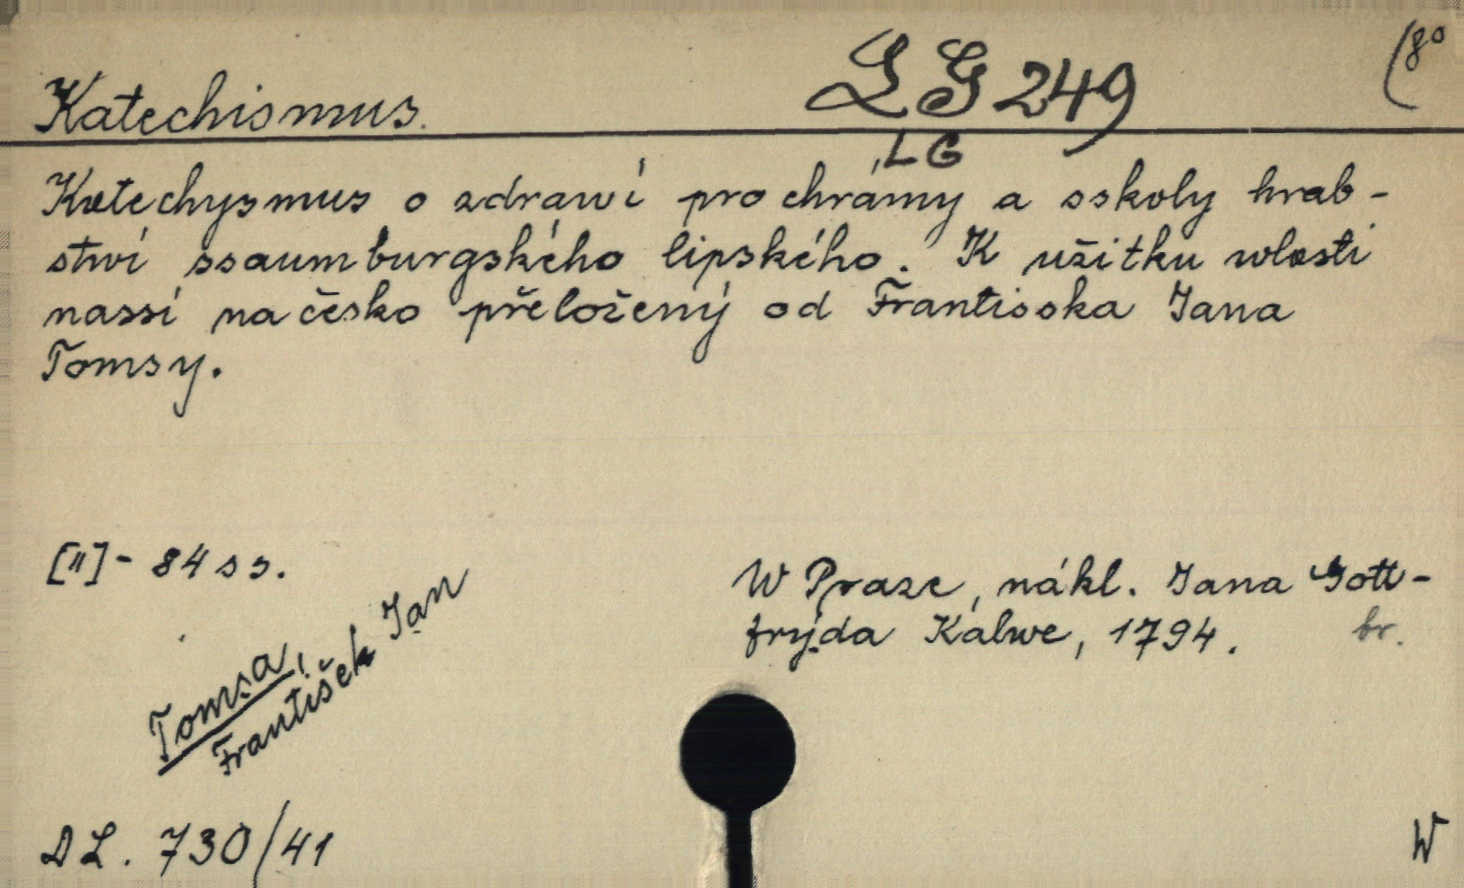 Katechismus.
LG 249
(8°
LG
Katechysmus o zdrawí pro chrámy a sskoly hrab-
ství ssaumburgského lipského. K užitku wlasti
nassí na česko přeložený od Frantisska Jana
Tomsy.
[II] - 84 ss.
W Praze, nákl. Jana Gott-
frýda Kalwe, 1794.
br.
Tomsa,
František Jan
DL. 730/41
W